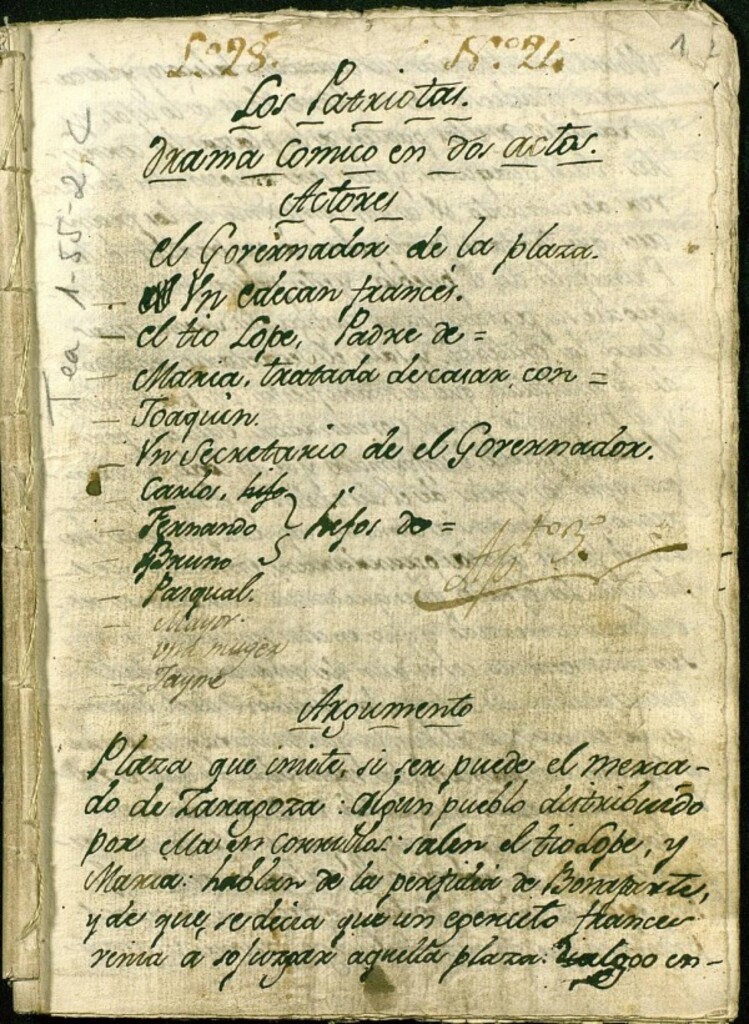 Lº 28. Nº 21.
1
Tea 1-55-2
Los Patriotas.
Drama Comico en dos actos.
Actores
el Governador de la plaza.
Vn edecan francés.
el tio Lope, Padre de =
Maria, tratada de casar, con =
Joaquin.
Vn Secretario de el Governador.
Carlos, hijo
Fernando } hijos de =
Bruno
Pasqual.
Mayor.
una muger
Jayme
Argumento
Plaza que imite, si ser puede el merca-
do de Zaragoza: algun pueblo distribuido
por ella en corrillos: salen el tio Lope, y
Maria: hablan de la perfidia de Bonaparte,
y de que, se decia que un egercito frances
venia a sojuzgar aquella plaza: en-